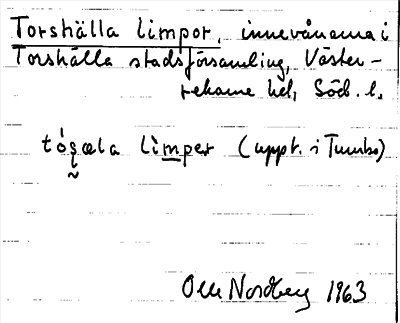 Torshälla limpor, innevånarna i
Torshälla stadsförsamling, Väster-
rekarne hd, Söd. l.
tó̀ṣæla lìmper (uppt. i Tumbo)
Olle Nordberg 1963